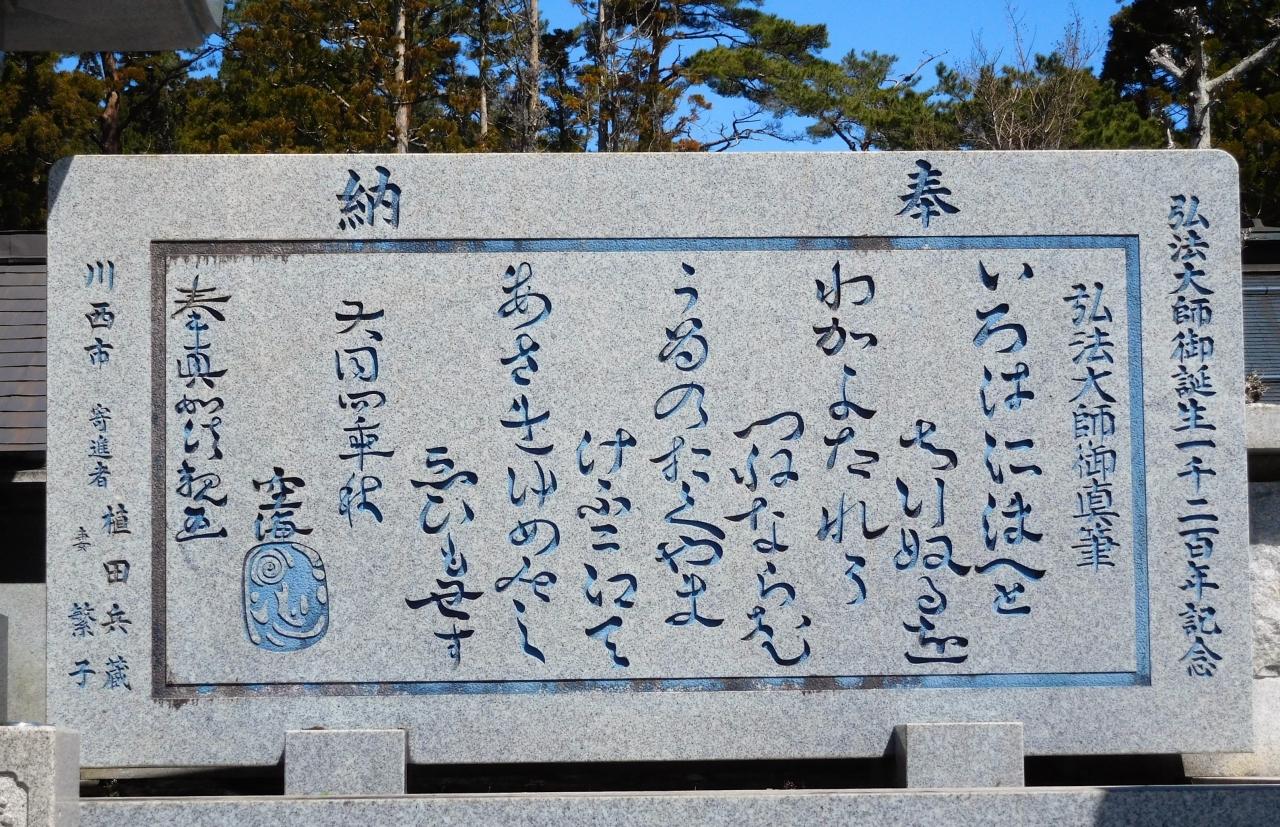 奉納
弘法大師御誕生一千二百年記念
弘法大師御真筆
いろはにほへと
ちりぬるを
わかよたれそ
つねならむ
うゐのおくやま
けふこえて
あさきゆめみし
ゑひもせす
大同四年秋
空海
奉真如法親王
川西市 寄進者 植田兵蔵
妻 繁子